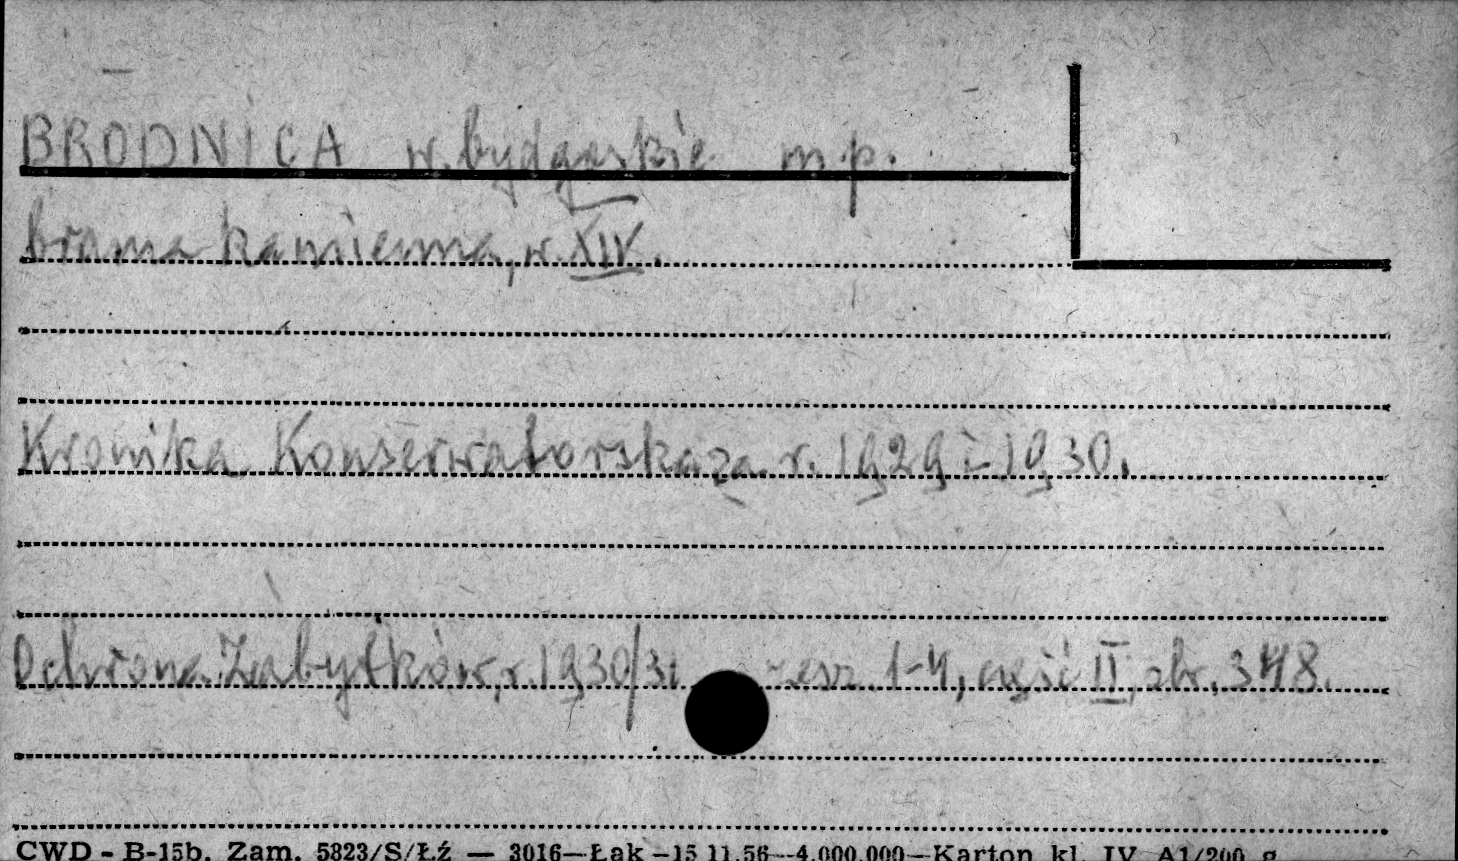 BRODNICA w. bydgoskie m.p.
brama kamienna, w. XIV.
Kronika Konserwatorska za r. 1929 i 1930.
Ochrona Zabytków, r. 1930/31 zesz. 1-4, część II, str. 348.
CWD - B-15b. Zam. 5823/S/Łź — 3016—Łąk —15.11.56—4.000.000—Karton kl. IV A1/200 g